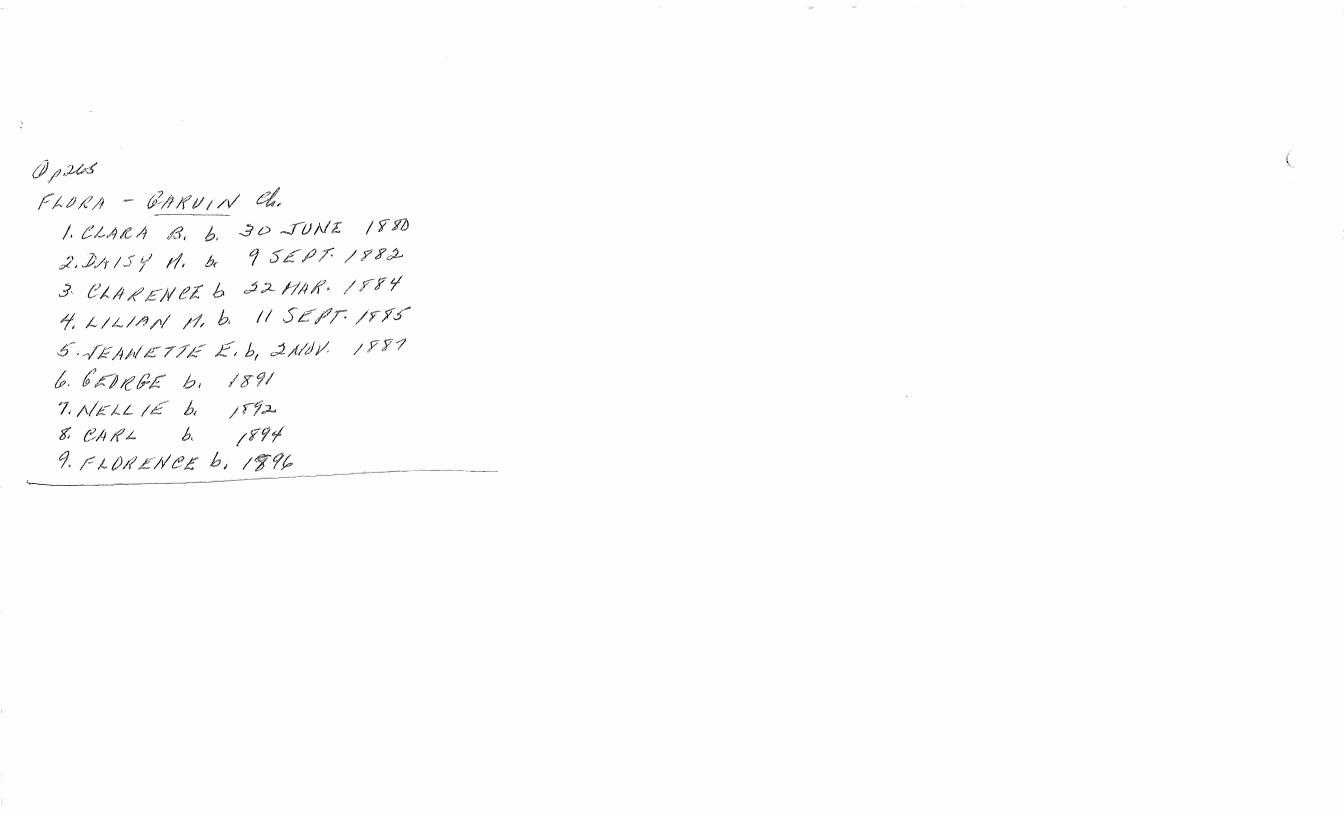 ① p265
FLORA - GARVIN Ch.
1. CLARA B. b. 30 JUNE 1880
2. DAISY M. b. 9 SEPT. 1882
3. CLARENCE b 22 MAR. 1884
4. LILIAN M. b. 11 SEPT. 1885
5. JEANETTE E. b, 2 NOV. 1887
6. GEORGE b. 1891
7. NELLIE b. 1892
8. CARL b. 1894
9. FLORENCE b. 1896